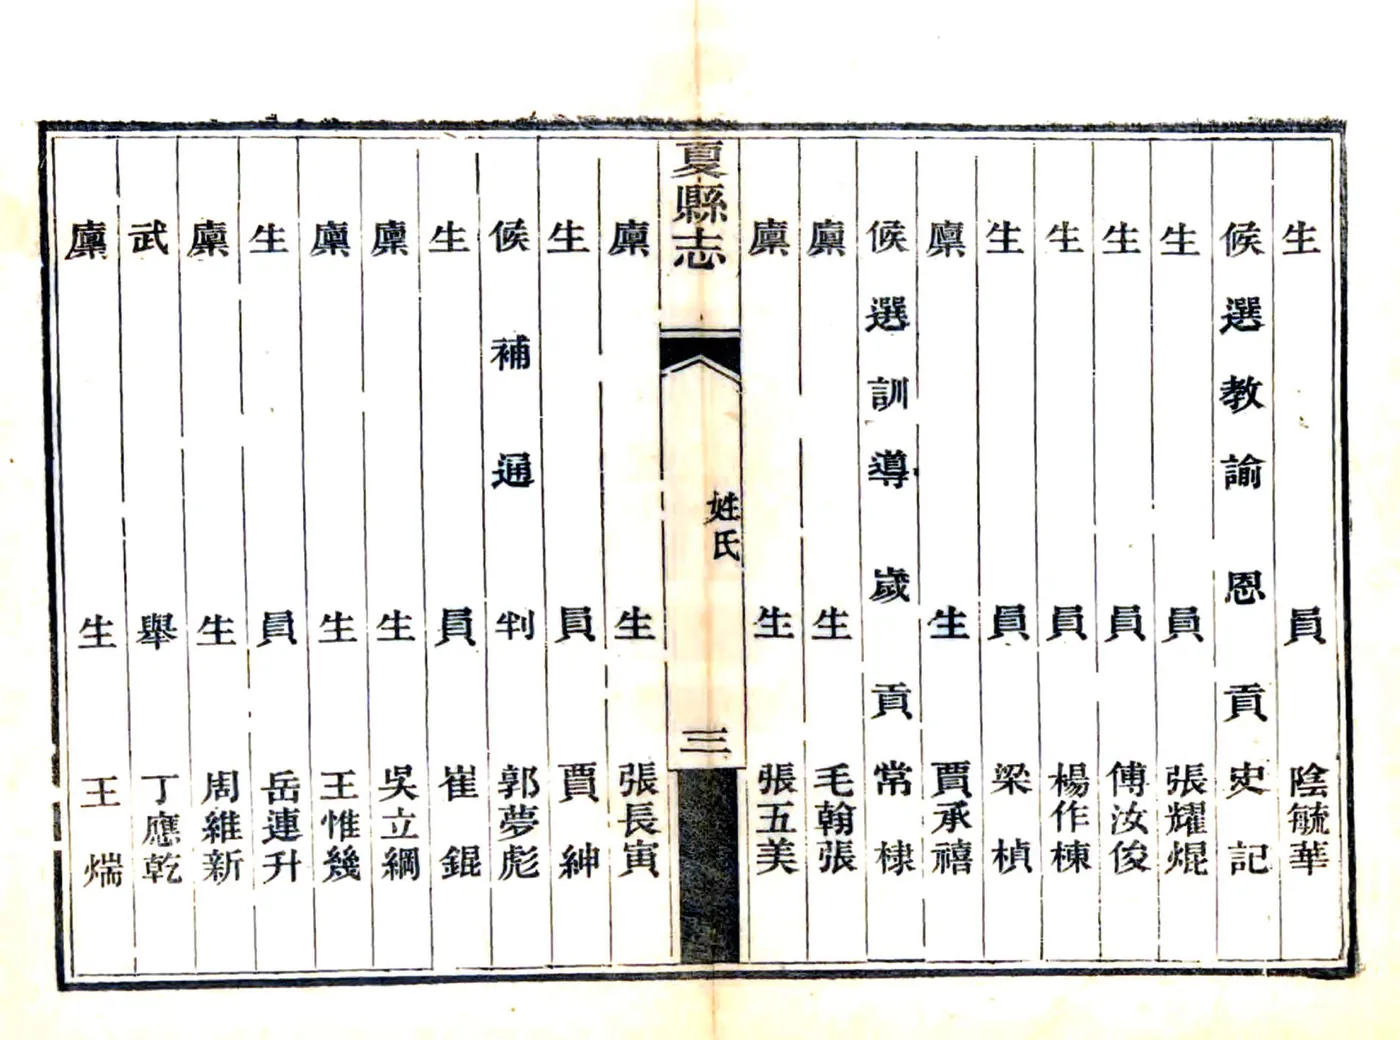 生員陰毓華
候選教諭恩貢史記
生員張耀焜
生員傅汝俊
生員楊作棟
生員梁楨
廩生賈承禧
候選訓導歲貢常棣
廩生毛翰張
廩生張五美
夏縣志
姓氏
三
廩生張長寅
生員賈紳
候補通判郭夢彪
生員崔錕
廩生吳立綱
廩生王惟幾
生員岳連升
廩生周維新
武舉丁應乾
廩生王煓